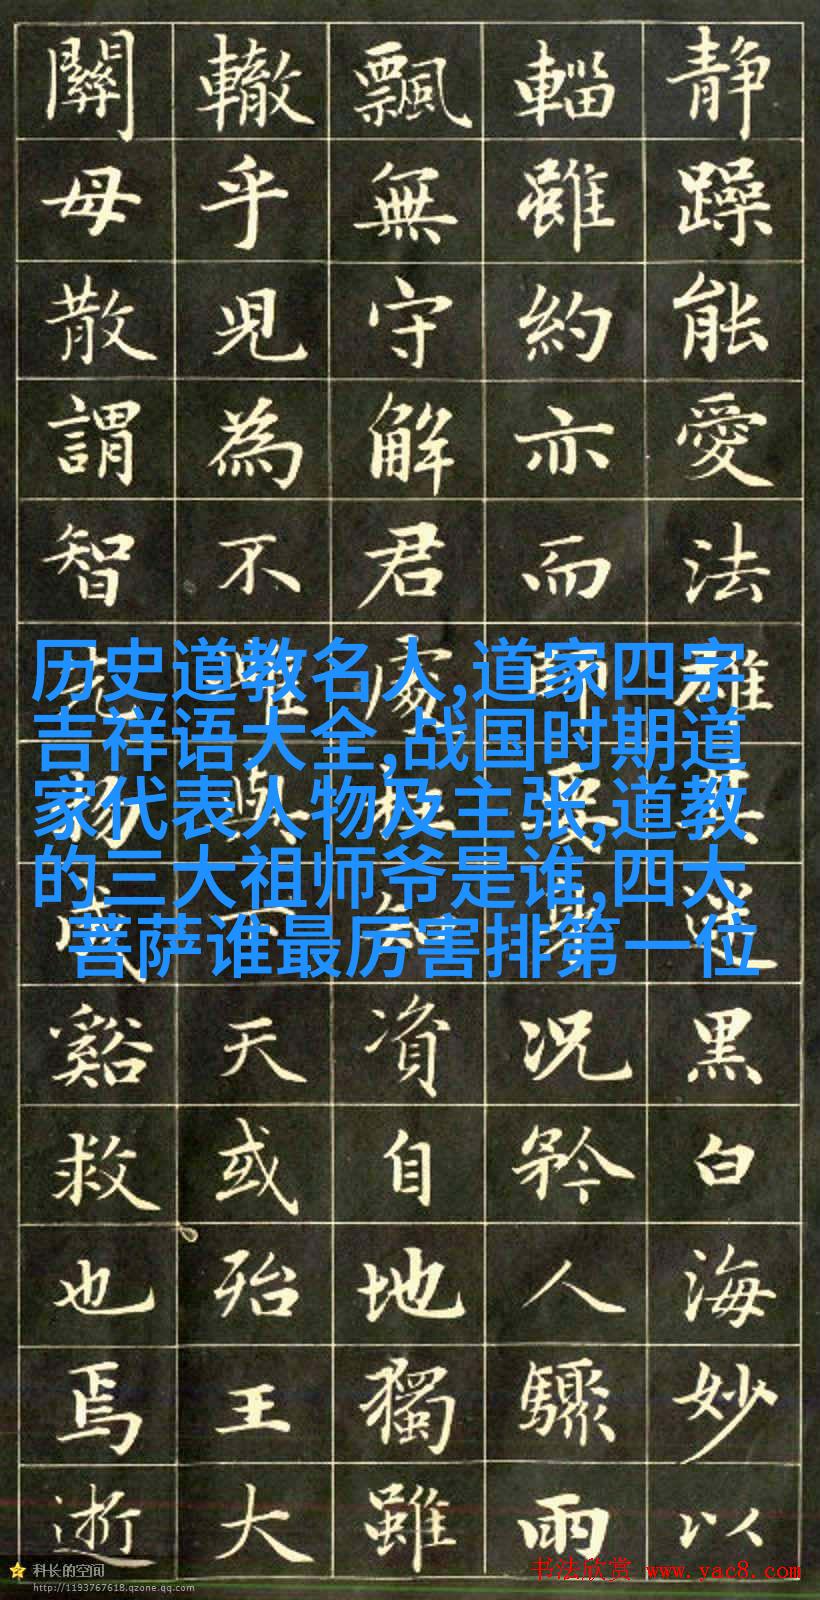 静躁能愛法雖黑白海妙以
輜雖約亦而况矜人驟雨
飄無守解君處資自地獨雖
轍乎見為不與天或殆王大
關毋散謂智成谿救也焉逝
历史道教名人,道家四字
吉祥语大全,战国时期道
家代表人物及主张,道教
的三大祖师爷是谁,四大
菩萨谁最厉害排第一位
科长的空间
http://1193767618.qzone.qq.com
书法欣赏 www.yac8.com